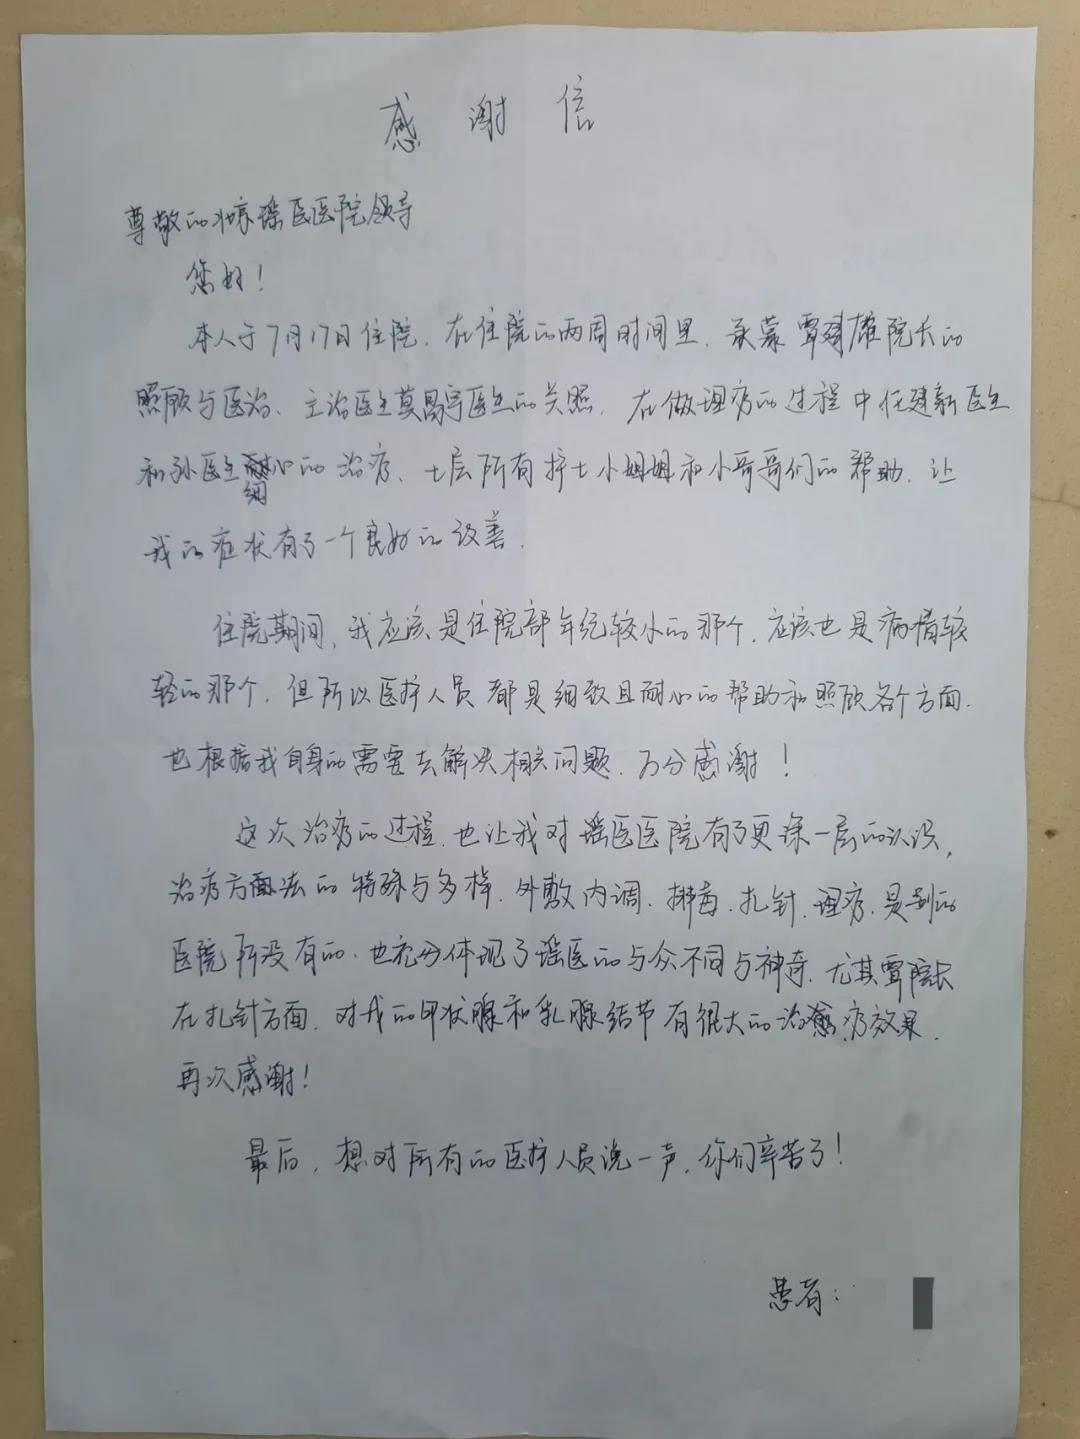 感谢信
尊敬的瑶医医院领导
您好！
本人于7月17日住院，在住院的两周时间里，承蒙覃建雄院长的
照顾与医治、主治医生莫昌宇医生的关照，在做理疗的过程中任建新医生
和孙医生细心的治疗、七层所有护士小姐姐和小哥哥们的帮助，让
我的症状有了一个良好的改善。
住院期间，我应该是住院部年纪较小的那个，应该也是病情较
轻的那个，但所以医护人员都是细致且耐心的帮助和照顾各个方面，
也根据我自身的需要去解决相关问题，万分感谢！
这次治疗的过程，也让我对瑶医医院有了更深一层的认识，
治疗方法的特殊与多样，外敷内调、排毒、扎针、理疗，是别的
医院所没有的，也充分体现了瑶医的与众不同与神奇，尤其覃院长
在扎针方面，对我的甲状腺和乳腺结节有很大的治愈疗效果，
再次感谢！
最后，想对所有的医护人员说一声，你们辛苦了！
患者：